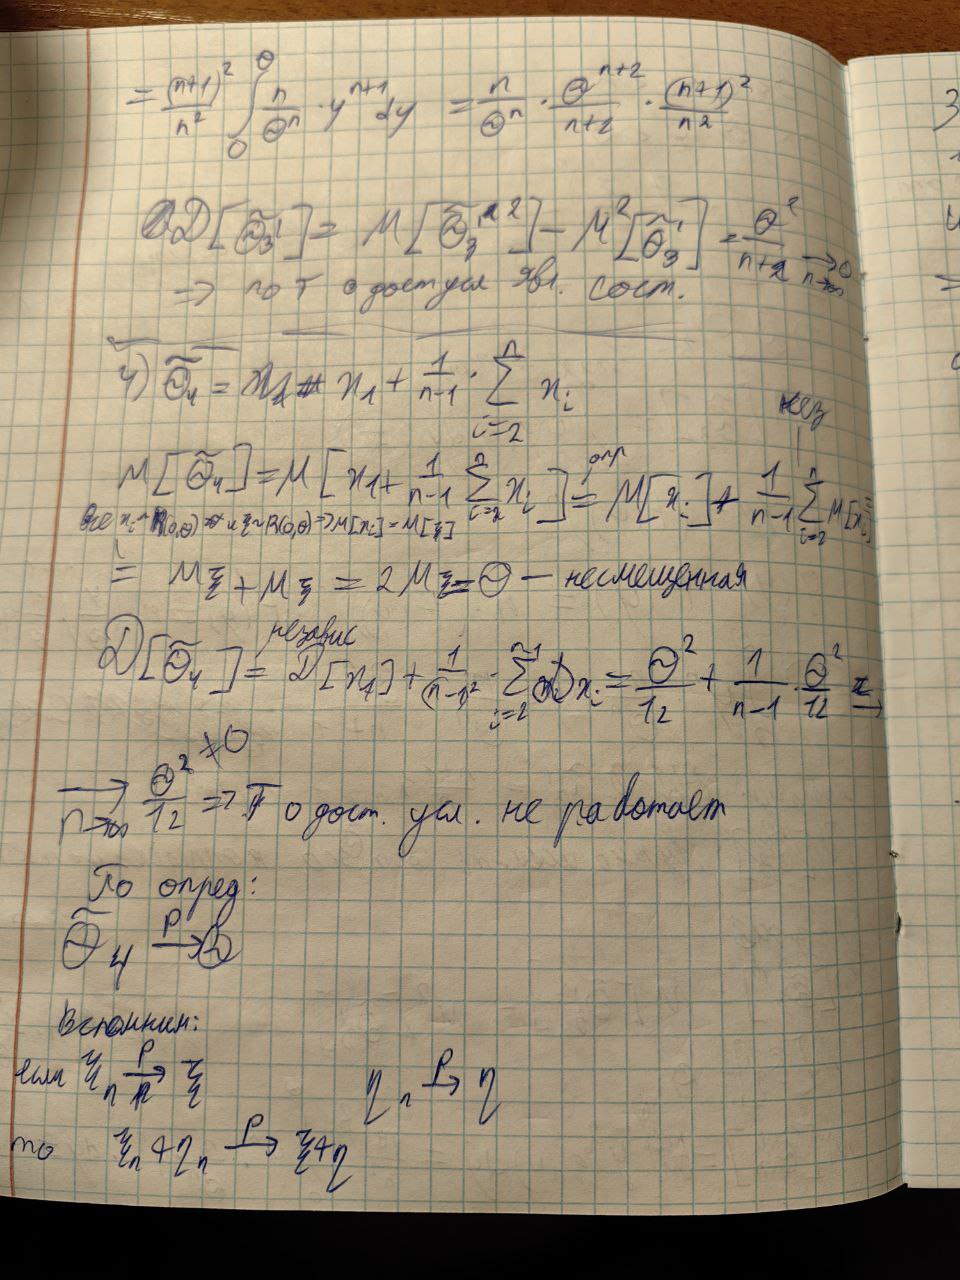 = (n+1)²/n² ∫₀^Θ n/Θⁿ · yⁿ⁺¹ dy = n/Θⁿ · Θⁿ⁺²/(n+2) · (n+1)²/n²
D[Θ̃₃'] = M[Θ̃₃'²] − M²[Θ̃₃'] = Θ²/(n+2) → 0 n→∞
⇒ по Т о дост усл явл. сост.
4) Θ̃₄ = x₁ + 1/(n-1) · Σᵢ₌₂ⁿ xᵢ
нез
M[Θ̃₄] = M[x₁ + 1/(n-1) Σᵢ₌₂ⁿ xᵢ] = опр M[xᵢ] + 1/(n-1) Σᵢ₌₂ⁿ M[xᵢ] =
Все xᵢ ~ R(0,Θ) и ξ ~ R(0,Θ) ⇒ M[xᵢ] = M[ξ]
= Mξ + Mξ = 2Mξ = Θ — несмещенная
независ
D[Θ̃₄] = D[x₁] + 1/(n-1)² · Σᵢ₌₂ⁿ⁻¹ Dxᵢ = Θ²/12 + 1/(n-1) · Θ²/12 →
→ n→∞ Θ²/12 ≠ 0 ⇒ Т о дост. усл. не работает
По опред:
Θ̃₄ →ᴾ Θ
Вспомним:
если ξₙ →ᴾ ξ ηₙ →ᴾ η
то ξₙ + ηₙ →ᴾ ξ + η